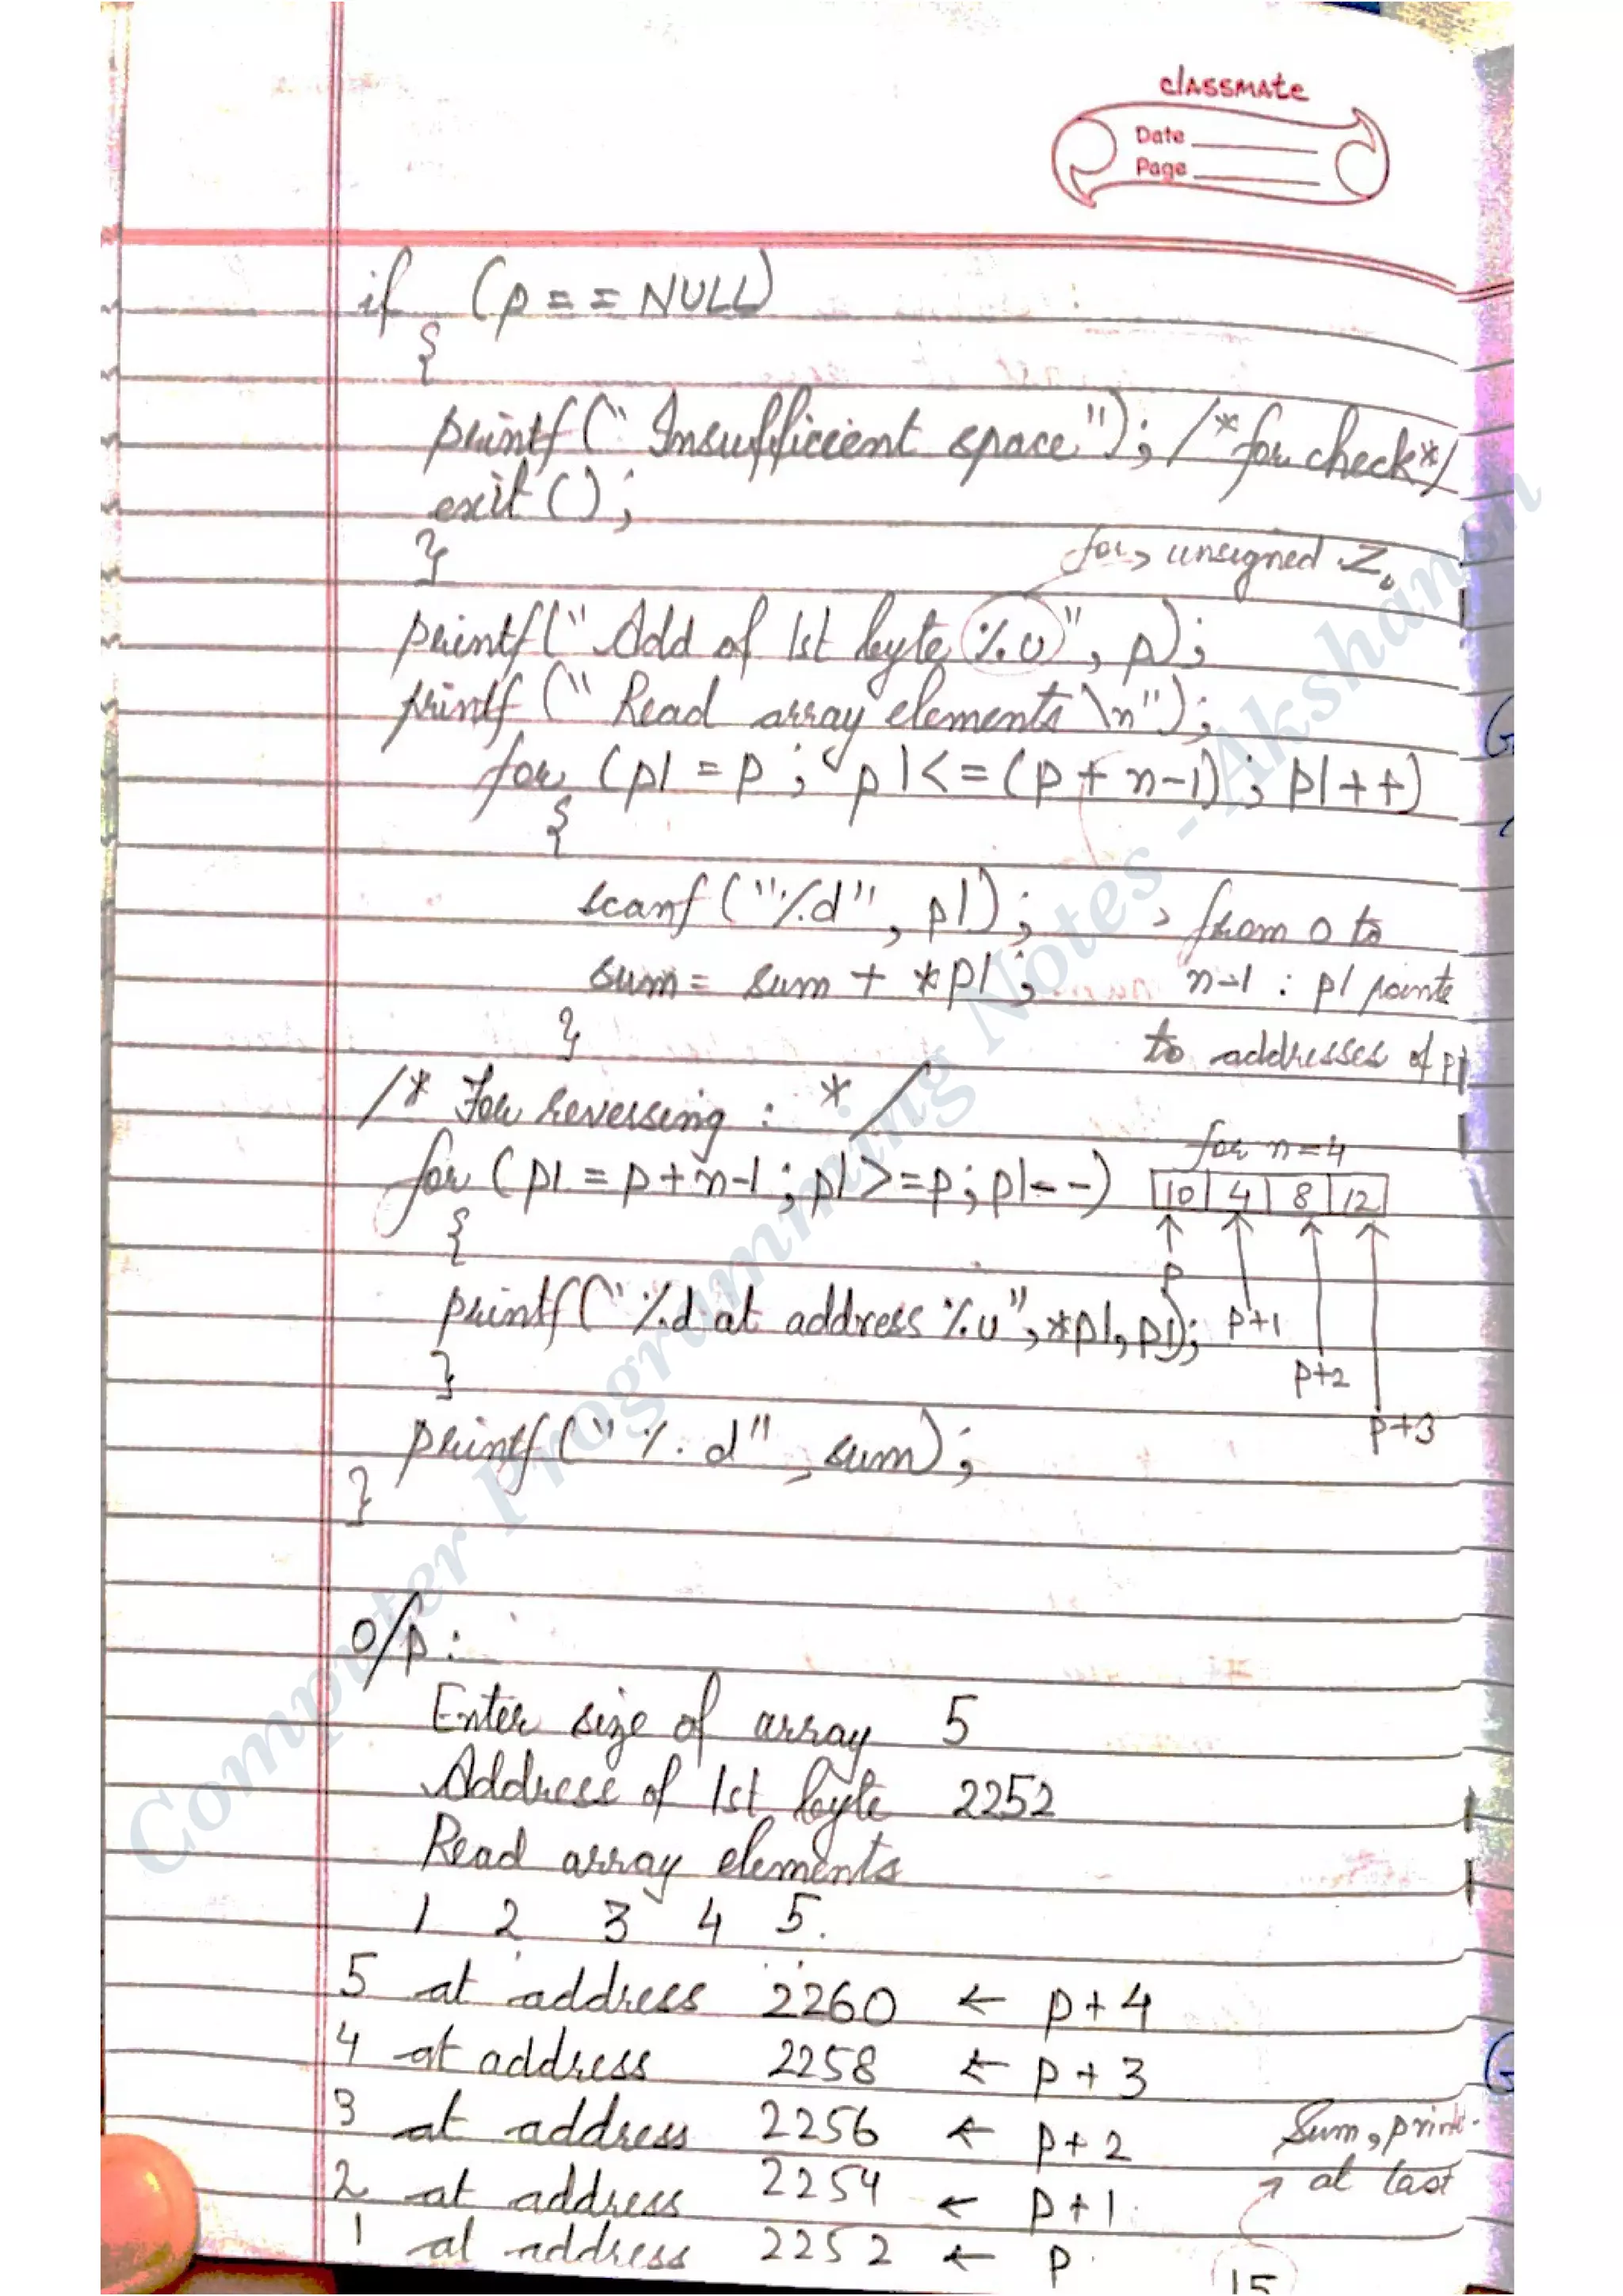 classmate
Date
Page
if (p == NULL)
{
printf(" Insufficient space"); /* for check */
exit();
}
for, unsigned Z.
printf(" Add of 1st byte %u", p);
printf (" Read array elements \n");
for (p1 = p ; p1 <= (p + n-1) ; p1++)
{
scanf ("%d", p1);
sum = sum + *p1 ;
}
from 0 to
n-1 : p1 points
to addresses of p1
/* For reversing : */
for (p1 = p+n-1 ; p1 >= p ; p1--)
{
printf("%d at address %u", *p1, p1);
}
printf (" %d", sum);
}
for n=4
10 4 8 12
p
p+1
p+2
p+3
O/p :
Enter size of array 5
Address of 1st byte 2252
Read array elements
1 2 3 4 5.
5 at address 2260 ← p+4
4 at address 2258 ← p+3
3 at address 2256 ← p+2
2 at address 2254 ← p+1
1 at address 2252 ← p
Sum, print
at last
15
Computer Programming Notes - Akshansh